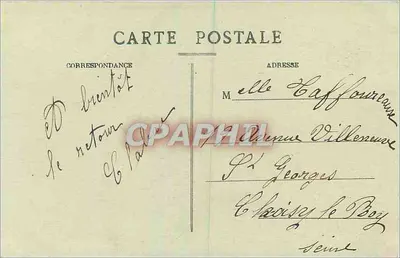 CARTE POSTALE
CORRESPONDANCE
ADRESSE
A bientôt
le retour
Melle Taffoureau
Avenue Villeneuve
St Georges
Choisy le Roy
Seine
CPAPHIL.com